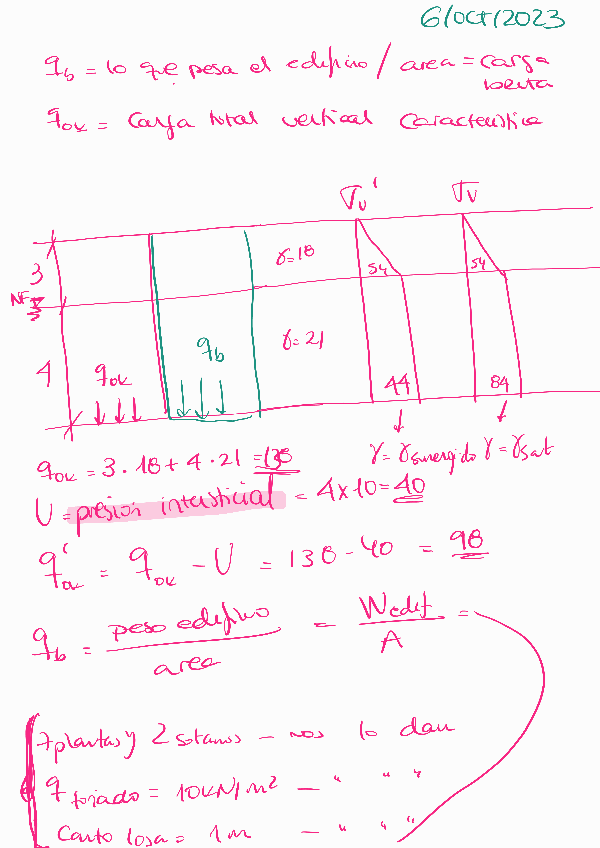 6/oct/2023
q_b = lo que pesa el edificio / area = carga
bruta
q_ok = Carga total vertical caracteristica
σ_v' σ_v
3 γ=18 54 54
NF
4 q_ok q_b γ=21 44 84
γ=γ_sumergido γ=γ_sat
q_ok = 3·18+4·21 = 138
U = presion intersticial = 4x10=40
q'_ok = q_ok - U = 138-40 = 98
q_b = peso edificio / area = W edif / A =
7 plantas y 2 sotanos – nos lo dan
q forjado = 10kN/m² – " " "
Canto losa = 1 m – " " "